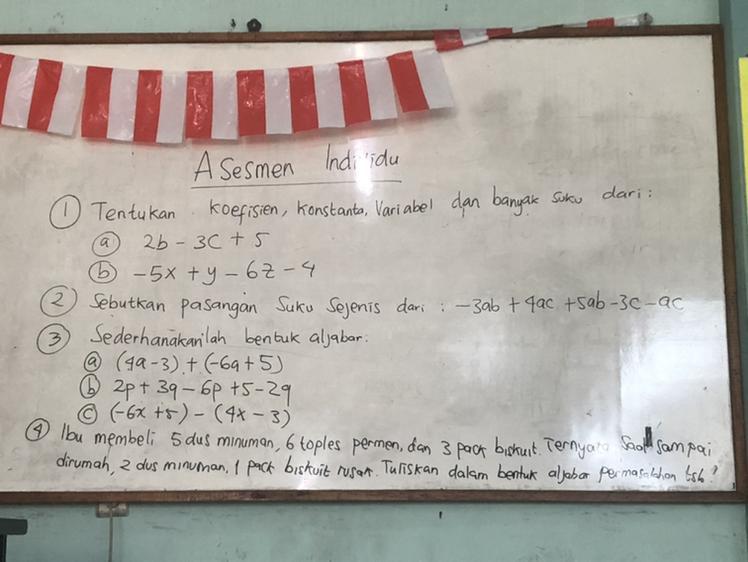 Asesmen Individu
① Tentukan koefisien, konstanta, Variabel dan banyak suku dari :
ⓐ 2b - 3C + 5
ⓑ -5x + y - 6z - 4
② Sebutkan pasangan Suku Sejenis dari : -3ab + 4ac + 5ab - 3c - ac
③ Sederhanakanlah bentuk aljabar:
ⓐ (4a - 3) + (-6a + 5)
ⓑ 2p + 3q - 6p + 5 - 2q
ⓒ (-6x + 5) - (4x - 3)
④ Ibu membeli 5 dus minuman, 6 toples permen, dan 3 pack biskuit. Ternyata Saat sampai
dirumah, 2 dus minuman, 1 pack biskuit rusak. Tuliskan dalam bentuk aljabar permasalahan tsb!